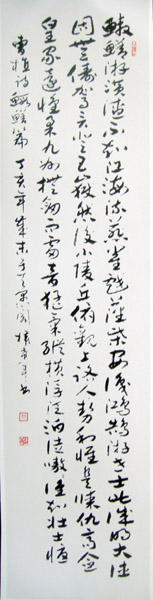 鰕䱇游潢潦不知江海流燕雀戲藩柴安識鴻鵠游世士此誠明大德
固無儔駕言登五嶽然後小陵丘俯觀上路人勢利惟是謀仇高念
皇家遠懷柔九州撫劍而雷音猛氣縱橫浮泛泊徒嗷嗷誰知壯士憂
曹植詩鰕䱇篇 丁亥年